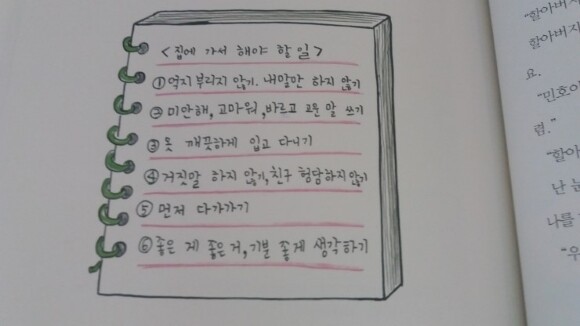 <집에 가서 해야 할 일>
①억지 부리지 않기. 내말만 하지 않기
②미안해, 고마워, 바르고 고운 말 쓰기
③옷 깨끗하게 입고 다니기
④거짓말 하지 않기, 친구 험담하지 않기
⑤먼저 다가가기
⑥좋은 게 좋은 거, 기분 좋게 생각하기
"할아버지
할아버지
요.
"민호야
렴."
"할아
난 눈
나를
"우